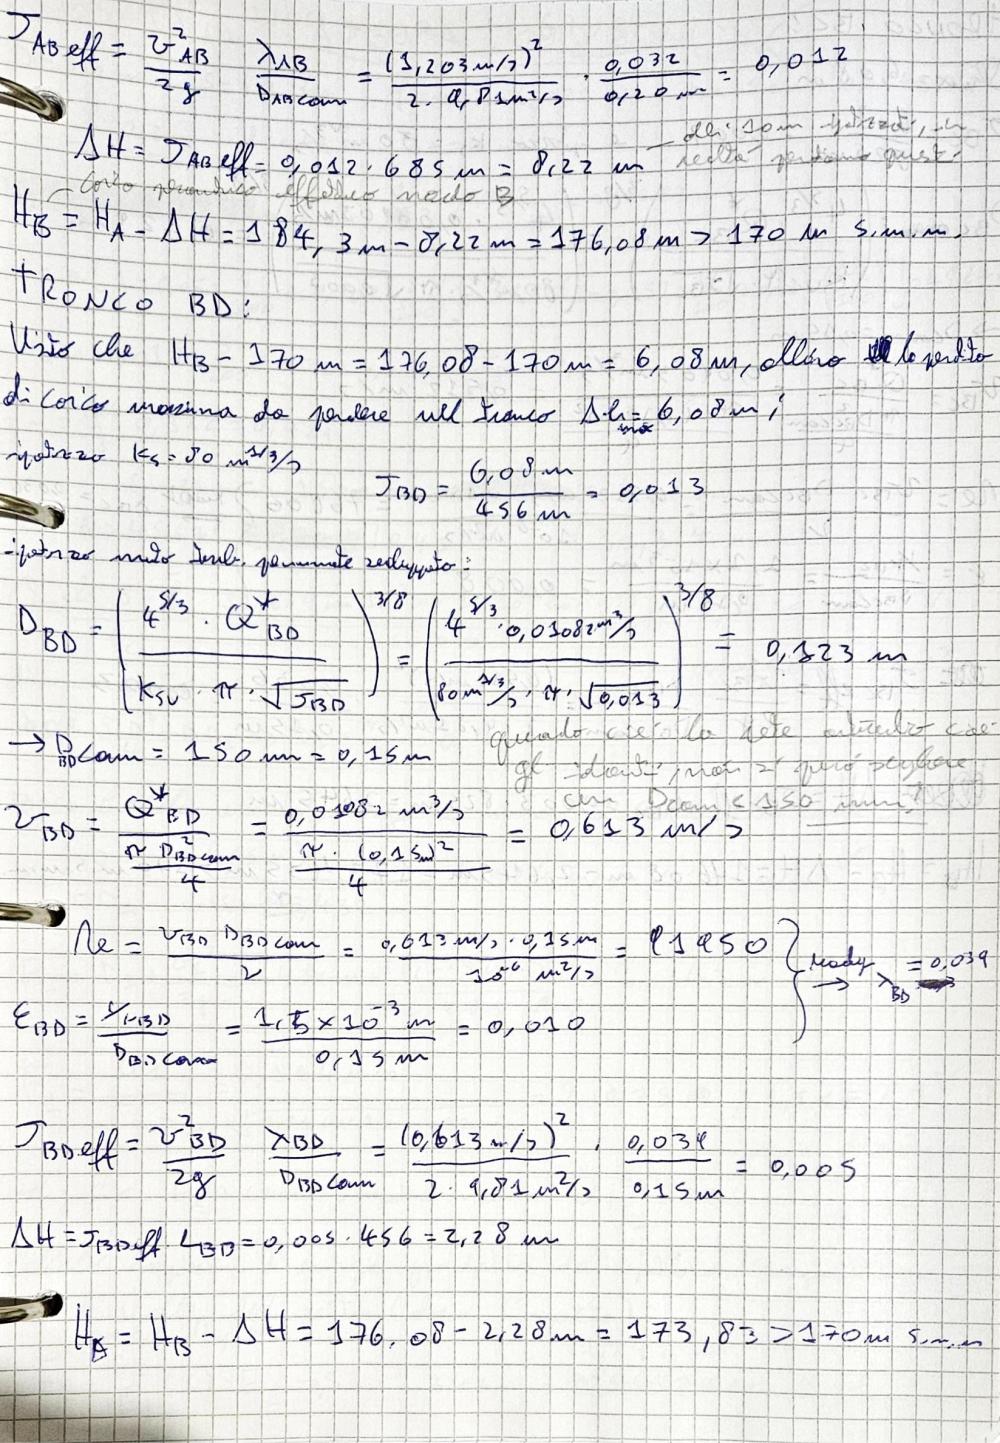 J AB eff = v²AB / 2g · λAB / D AB com = (1,203 m/s)² / 2 · 9,81 m²/s · 0,032 / 0,20 m = 0,012
ΔH = J AB eff = 0,012 · 685 m = 8,22 m
dei 10 m in realtà perdiamo
Carico effettivo nodo B
HB = HA - ΔH = 184,3 m - 8,22 m = 176,08 m > 170 m s.m.m.
TRONCO BD:
Visto che HB - 170 m = 176,08 - 170 m = 6,08 m, allora la perdita
di carico massima da perdere nel tronco Δh max = 6,08 m;
ipotizzo Ks = 80 m^1/3/s
J BD = 6,08 m / 456 m = 0,013
ipotizzo moto turb.
D BD = (4^5/3 · Q* BD / K su · π · √J BD)^3/8 = (4^5/3 · 0,01082 m³/s / 80 m^1/3/s · π · √0,013)^3/8 = 0,123 m
→ D BD com = 150 mm = 0,15 m
quando la rete
idranti, non si può scegliere
un D com < 150 mm!
v BD = Q* BD / (π D² BD com / 4) = 0,01082 m³/s / (π · (0,15 m)² / 4) = 0,613 m/s
Re = v BD D BD com / ν = 0,613 m/s · 0,15 m / 10^-6 m²/s = 91950
moody → λ BD = 0,039
ε BD = / D BD com = 1,5 × 10^-3 m / 0,15 m = 0,010
J BD eff = v² BD / 2g · λ BD / D BD com = (0,613 m/s)² / 2 · 9,81 m²/s · 0,039 / 0,15 m = 0,005
ΔH = J BD eff · L BD = 0,005 · 456 = 2,28 m
H = HB - ΔH = 176,08 - 2,28 m = 173,83 > 170 m s.m.m